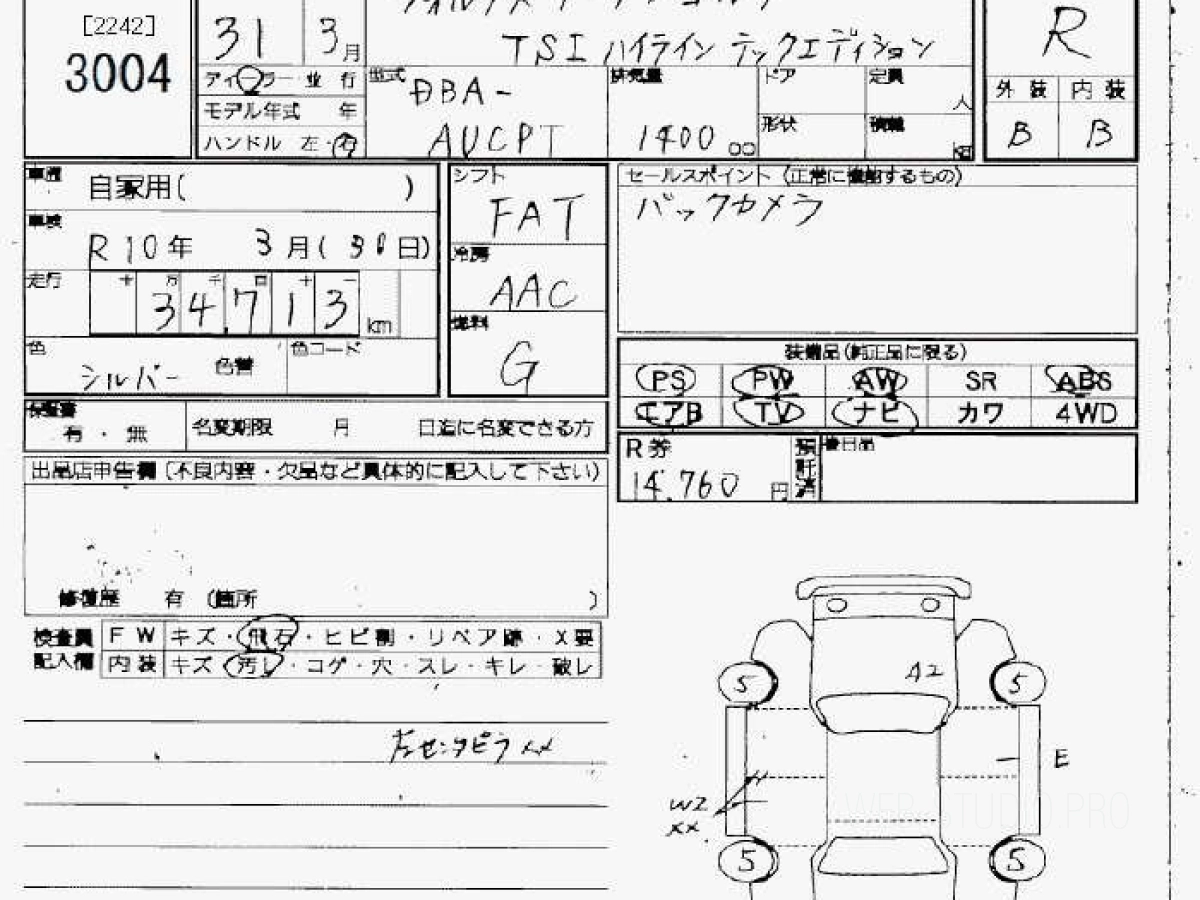 [2242]
3004
31 3月
TSI ハイライン テックエディション
R
ディーラー 並 行
型式
DBA-
AUCPT
排気量
1400 cc
ドア
定員
人
外 装 内 装
B B
モデル年式 年
形状
積載
kg
ハンドル 左・右
車歴
自家用( )
シフト
FAT
セールスポイント (正常に機能するもの)
バックカメラ
車検
R 10年 3月( 30日)
冷房
AAC
走行
十 万 千 百 十 一
34,713 km
燃料
G
色
シルバー
色替
色コード
装備品(純正品に限る)
PS PW AW SR ABS
エアB TV ナビ カワ 4WD
保証書
有・無
名変期限 月 日迄に名変できる方
R券
14,760 円
預託済
後日品
出品店申告欄(不良内容・欠品など具体的に記入して下さい)
修復歴 有 (箇所 )
検査員記入欄
FW キズ・飛石・ヒビ割・リペア跡・X要
内装 キズ・汚レ・コゲ・穴・スレ・キレ・破レ
左センタピラ XX
A2
5 5
E
W2
XX
5 5
WEB-STUDIO.PRO